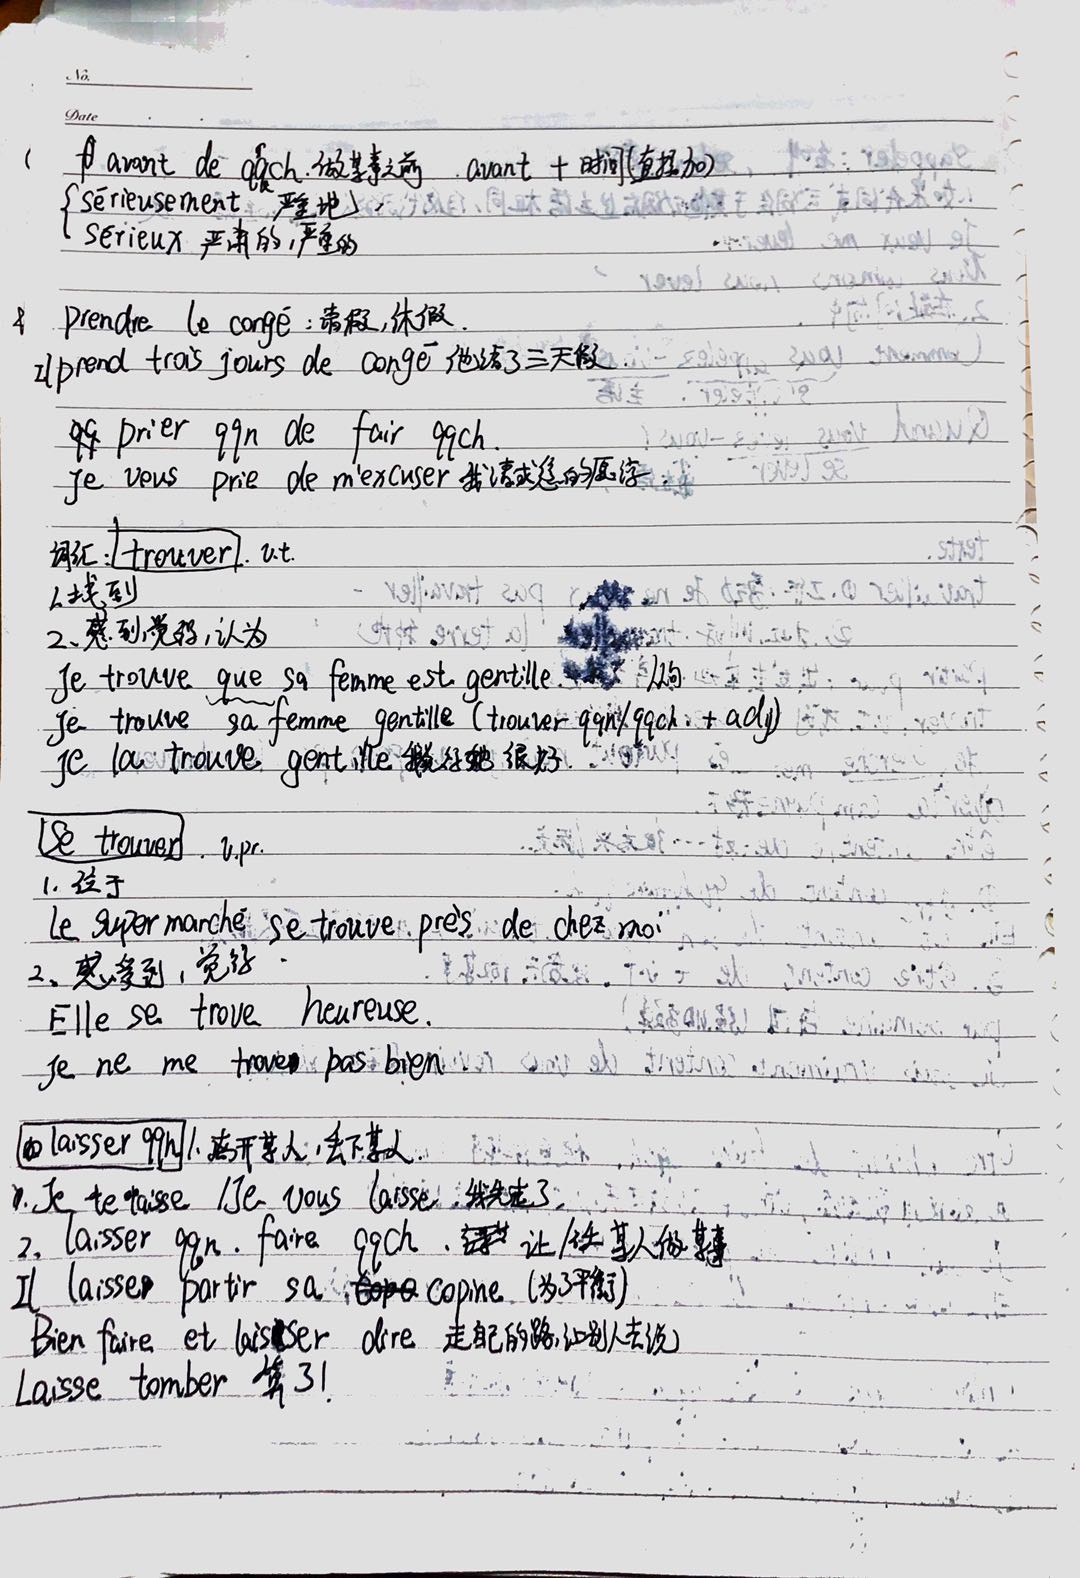 No.
Date
avant de qqch. 做某事之前 avant + 时间(直接加)
sérieusement 严重地
sérieux 严肃的, 严重的
prendre le congé : 请假, 休假.
Il prend trois jours de congé 他请了三天假.
prier qqn de fair qqch.
je vous prie de m'excuser 我请求您的原谅.
词汇: trouver. v.t.
1. 找到
2. 感到, 觉得, 认为
Je trouve que sa femme est gentille. 从句
je trouve sa femme gentille (trouver qqn/qqch. + adj)
je la trouve gentille 我觉得她很好.
Se trouver. v.pr.
1. 位于
Le supermarché se trouve près de chez moi
2. 感受到, 觉得.
Elle se trove heureuse.
je ne me trove pas bien
laisser qqn 1. 离开某人, 丢下某人.
1. Je te laisse / Je vous laisse. 我先走了
2. laisser qqn. faire qqch. 让/使某人做某事
Il laisse partir sa copine (为了平衡)
Bien faire et laisser dire 走自己的路, 让别人去说
Laisse tomber 算了!